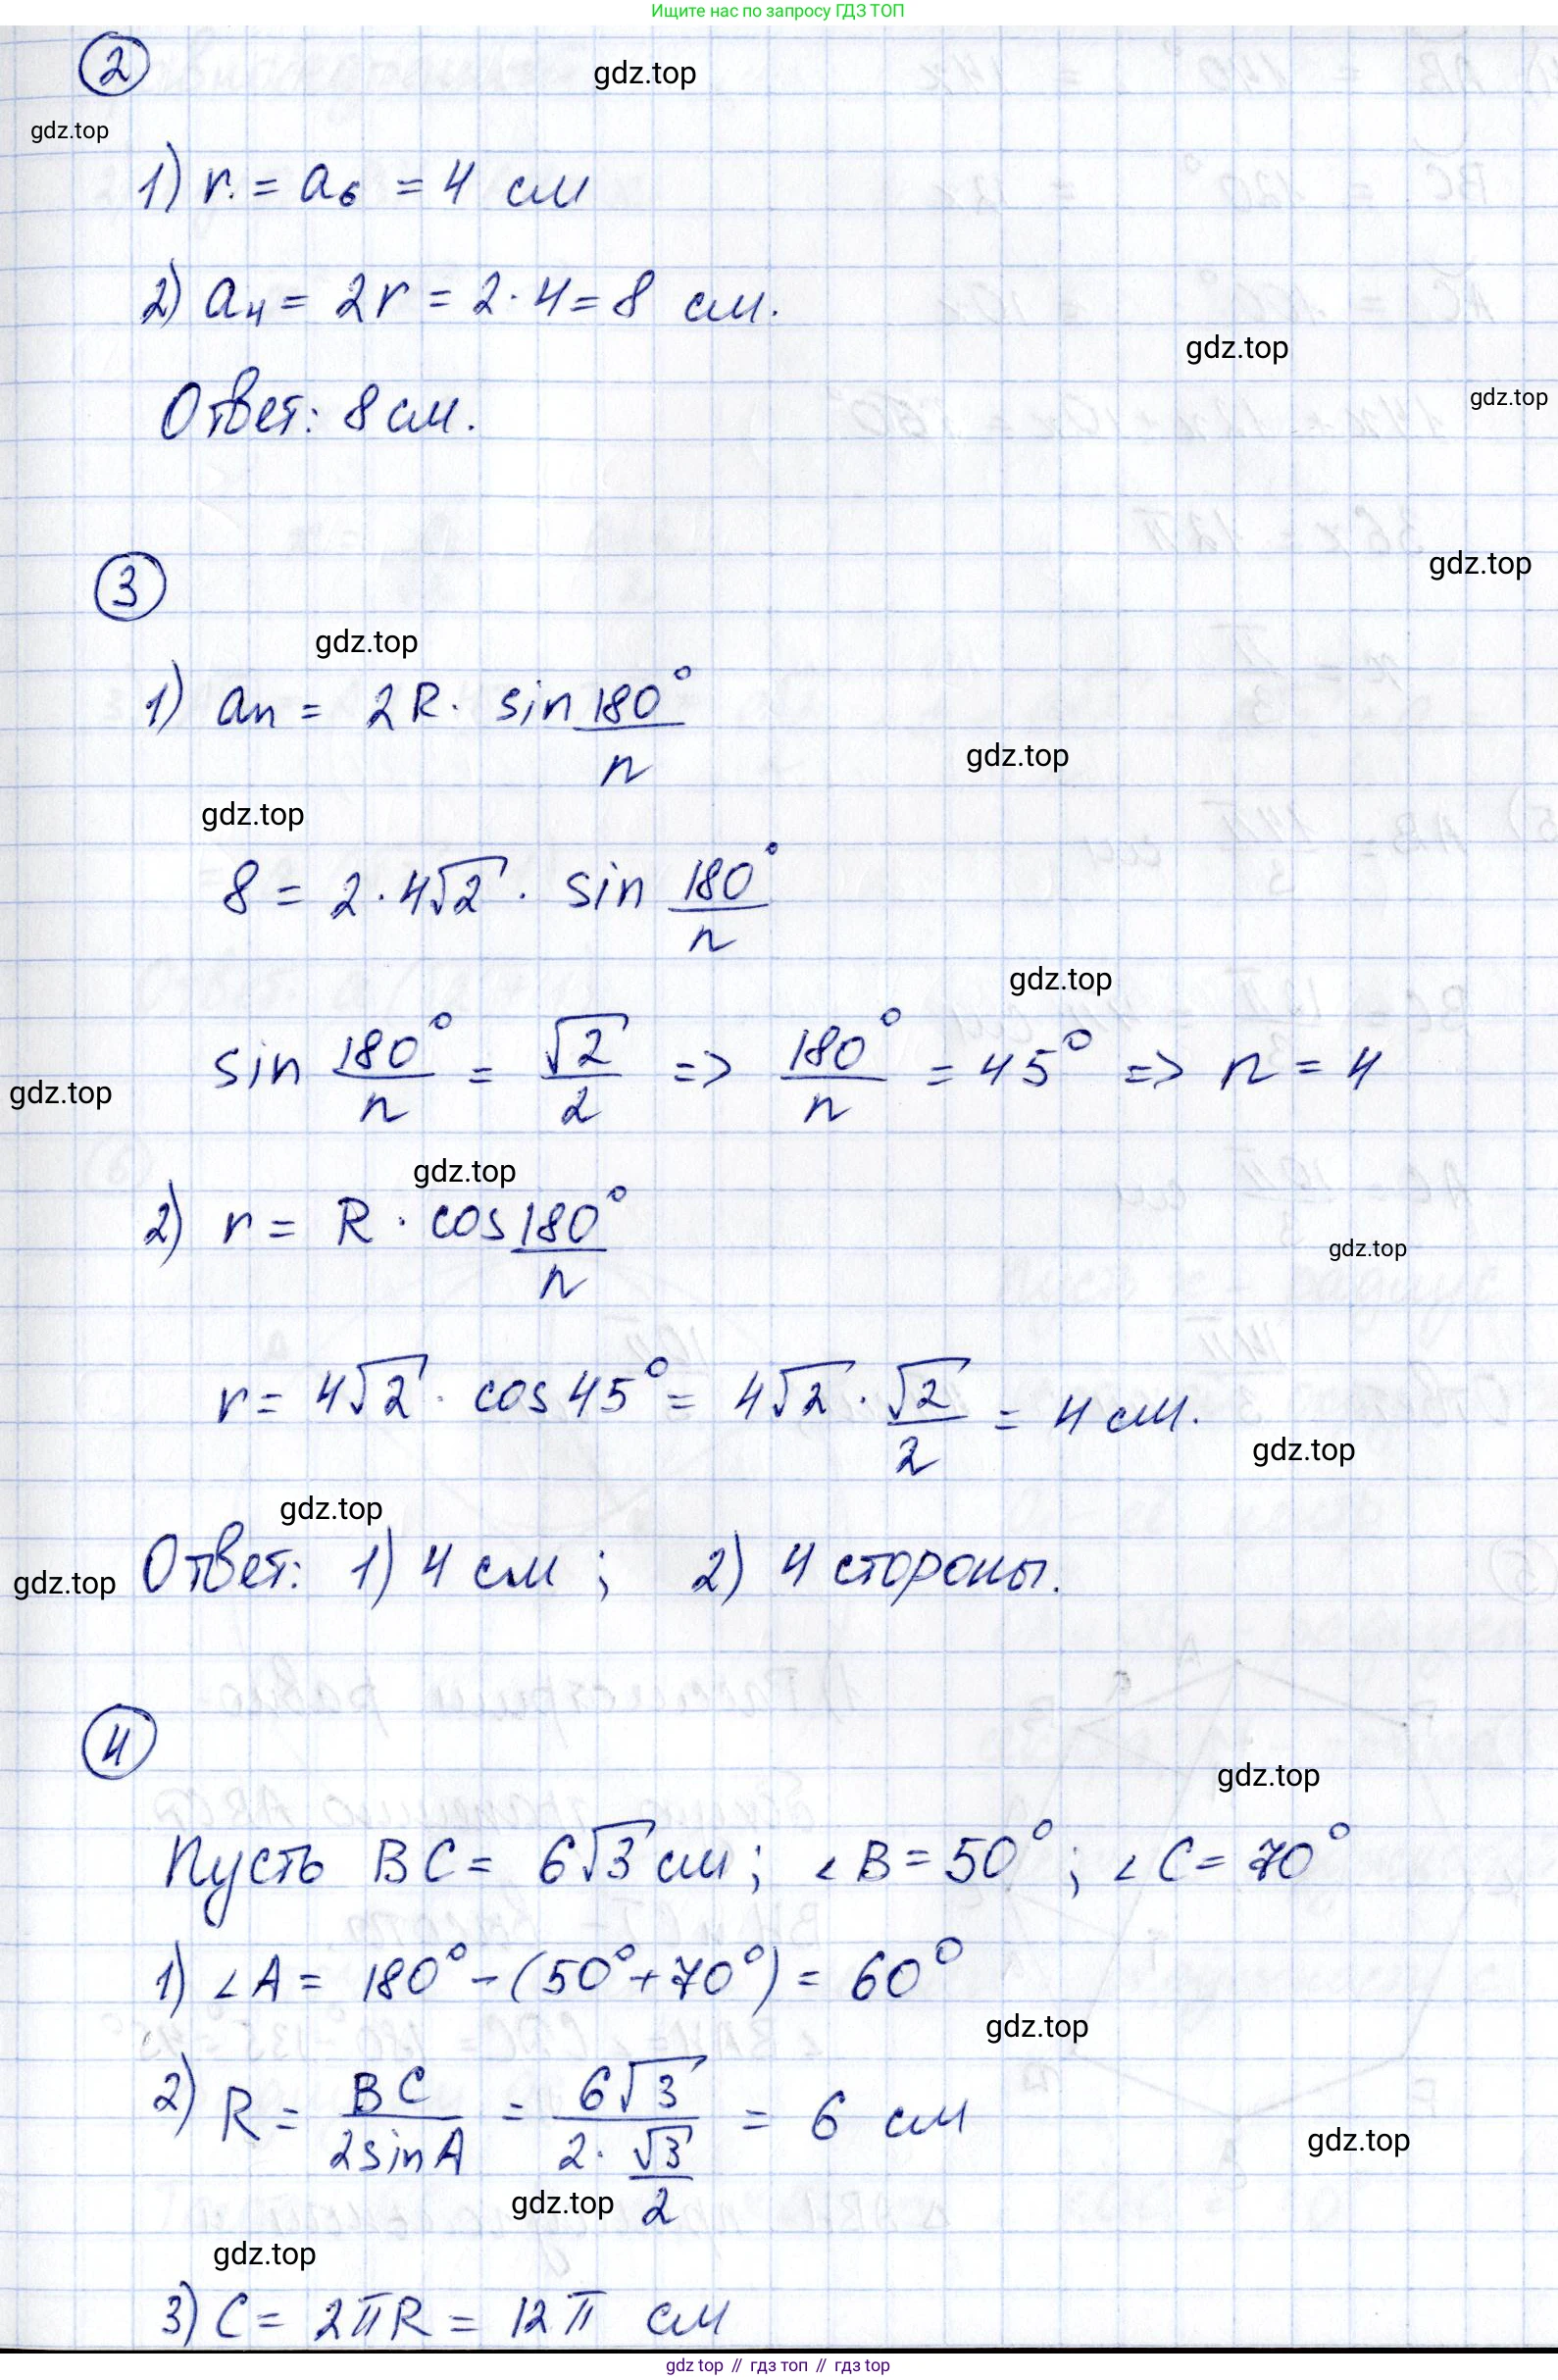 Ищите нас по запросу ГДЗ ТОП
2
gdz.top
gdz.top
1) r = a₆ = 4 см
2) a₄ = 2r = 2·4 = 8 см.
gdz.top
gdz.top
Ответ: 8 см.
3
gdz.top
gdz.top
1) aₙ = 2R · sin 180°/n
gdz.top
gdz.top
8 = 2·4√2 · sin 180°/n
gdz.top
sin 180°/n = √2/2 => 180°/n = 45° => n = 4
gdz.top
gdz.top
2) r = R · cos 180°/n
gdz.top
r = 4√2 · cos 45° = 4√2 · √2/2 = 4 см.
gdz.top
gdz.top
Ответ: 1) 4 см; 2) 4 стороны.
gdz.top
4
gdz.top
Пусть BC = 6√3 см; ∠B = 50°; ∠C = 70°
1) ∠A = 180° - (50° + 70°) = 60°
gdz.top
2) R = BC/2sinA = 6√3/(2·√3/2) = 6 см
gdz.top
gdz.top
gdz.top
3) C = 2πR = 12π см
gdz top // гдз топ // гдз top